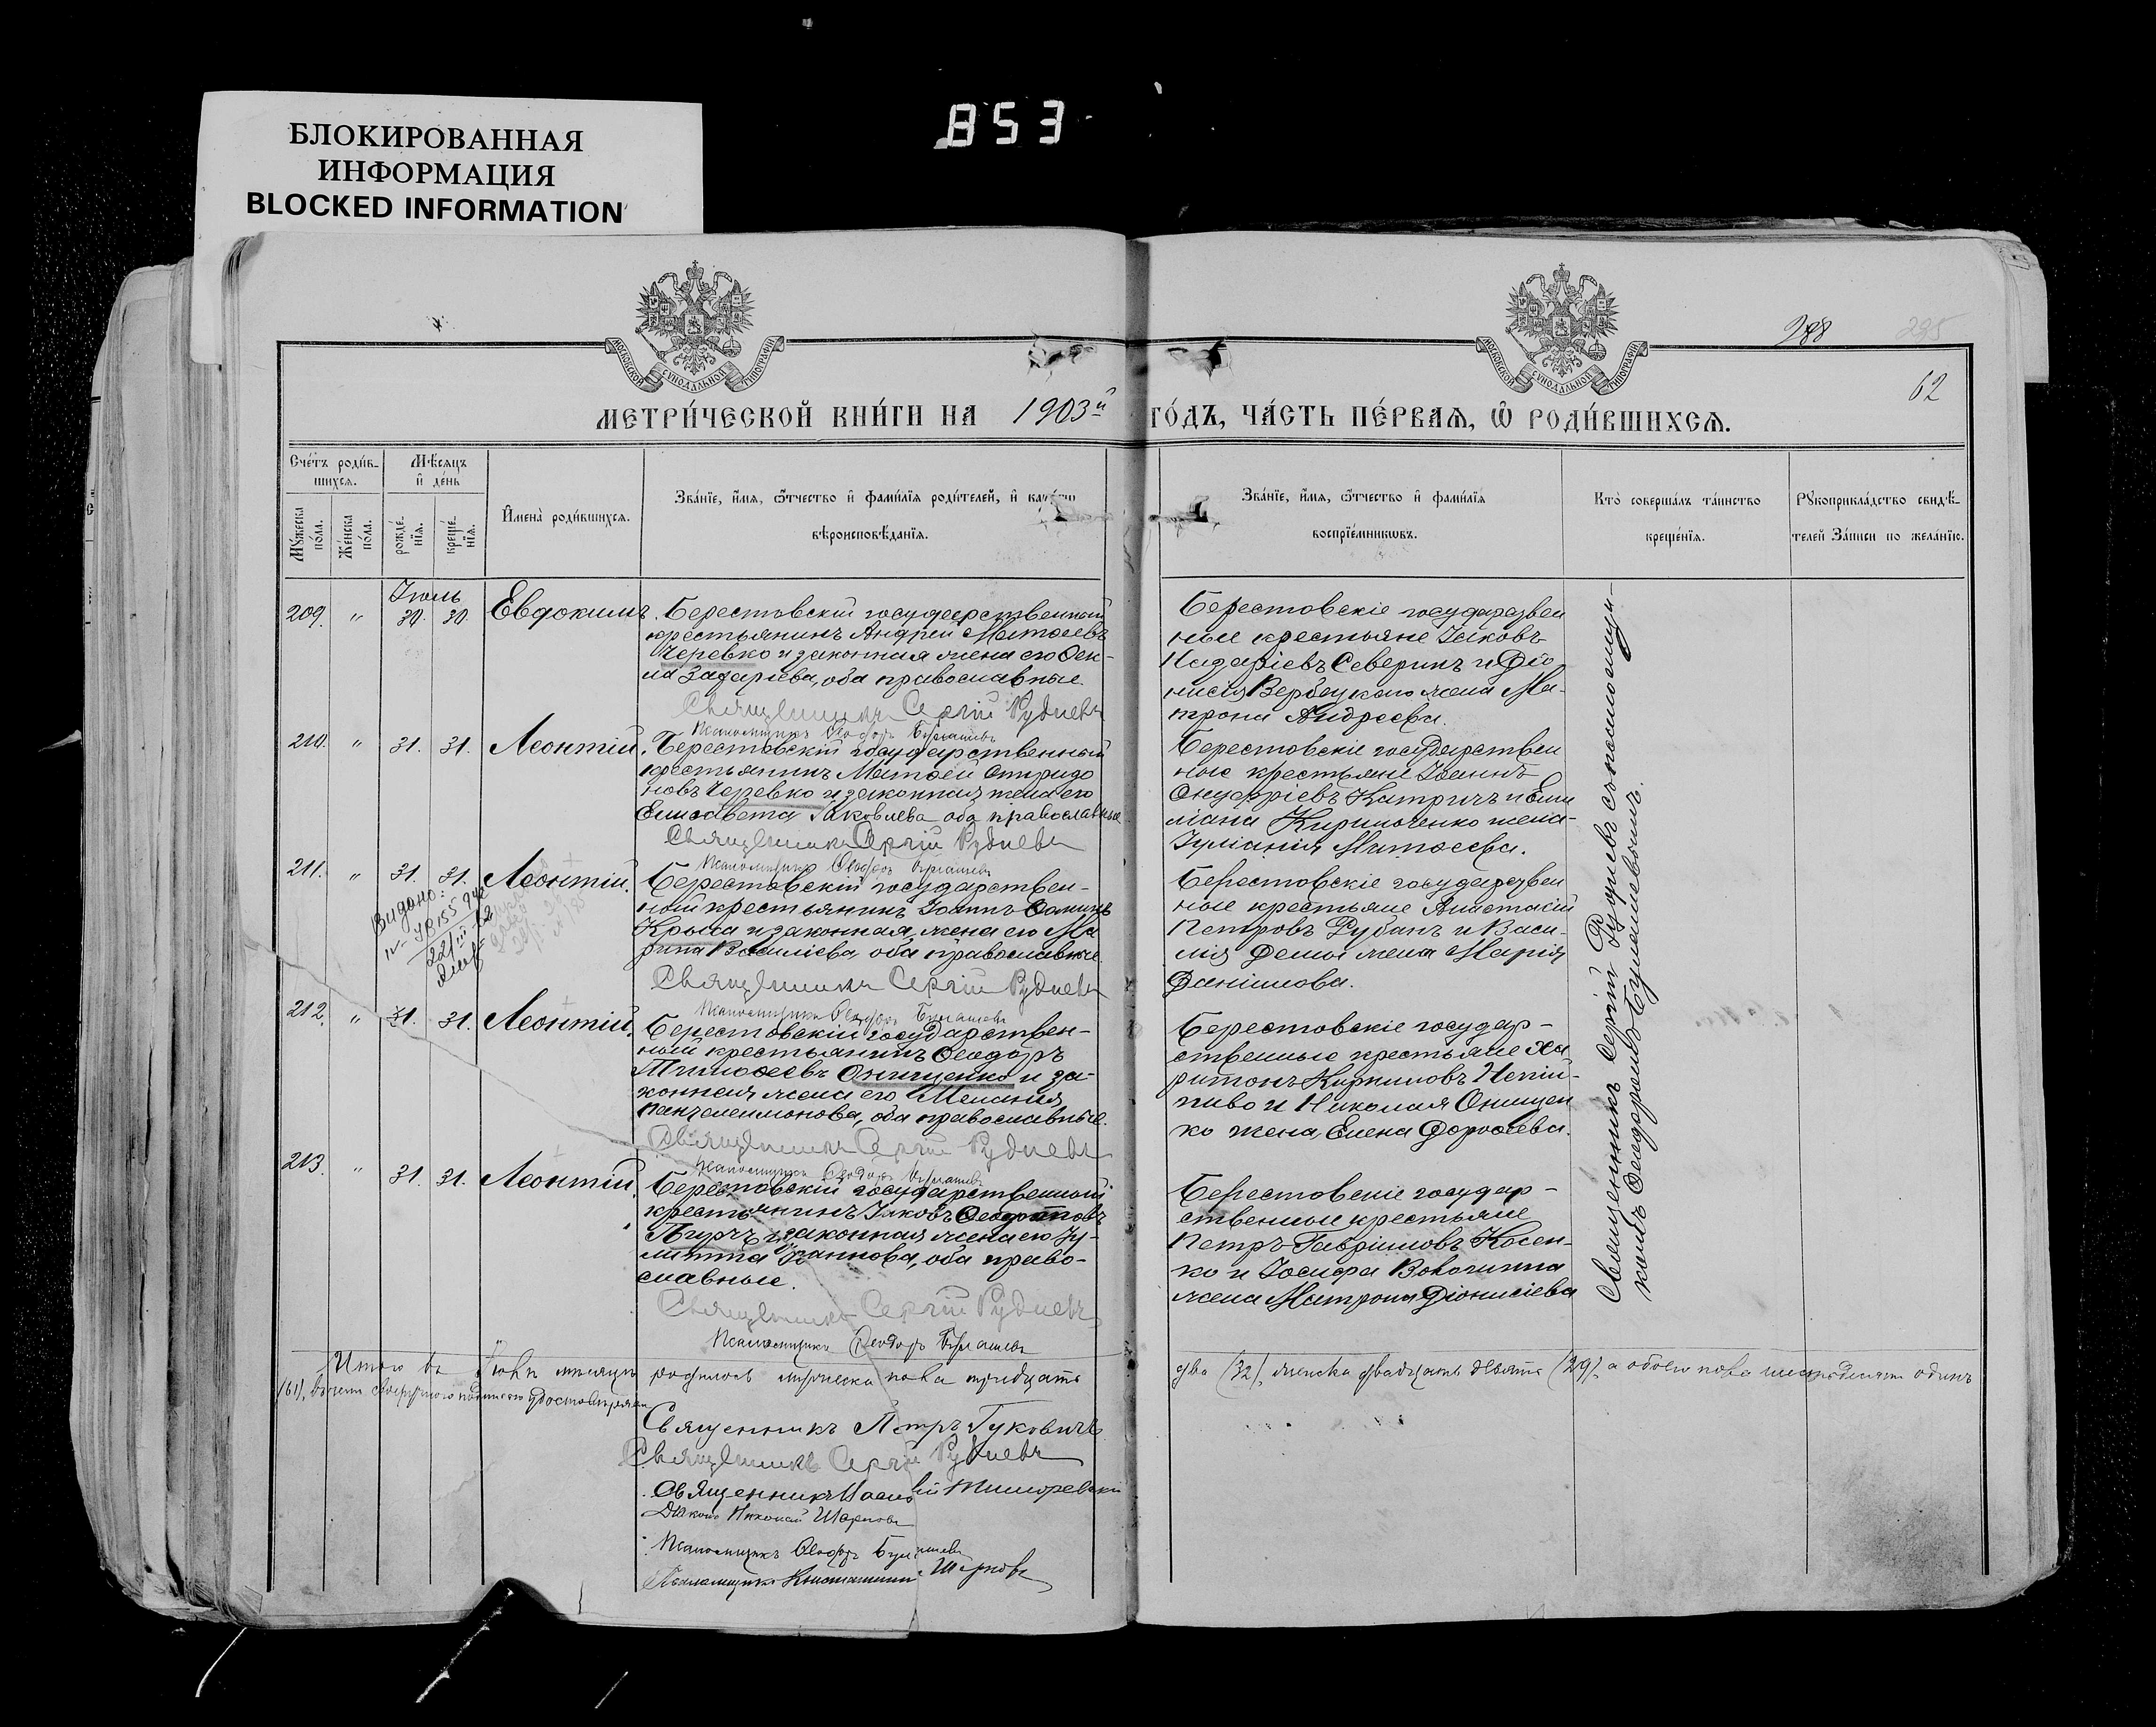 БЛОКИРОВАННАЯ
ИНФОРМАЦИЯ
BLOCKED INFORMATION
853
МОСКОВСКОЙ СѴНОДАЛЬНОЙ ТИПОГРАФІИ
МОСКОВСКОЙ СѴНОДАЛЬНОЙ ТИПОГРАФІИ
288
295
62
МЕТРИ́ЧЕСКОЙ КНИ́ГИ НА 1903й ГО́ДЪ, ЧА́СТЬ ПЕ́РВАѦ, Ѿ РОДИ́ВШИХСѦ.
Сче́тъ роди́в-
шихся.
Мѣ́сяцъ
и де́нь
Му́жеска
по́ла.
Же́нска
по́ла.
рожде́-
нїя.
креще́-
нїя.
И҆мена̀ роди́вшихся.
Зва́нїе, и҆́мя, ѻ҆́тчество и҆ фами́лїя роди́телей, и҆
вѣроисповѣ́данїя.
Зва́нїе, и҆́мя, ѻ҆́тчество и҆ фами́лїя
воспрїе́мникѡвъ.
Кто̀ соверша́лъ та́инство
креще́нїя.
Рꙋкоприкла́дство свидѣ́-
телей За́писи по жела́нїю.
Іюль
209. " 30. 30. Евдокимъ.
Берестовскій государственный
крестьянинъ Андрей Матѳеевъ
Черевко и законная жена его Ѳек-
ла Захаріева, оба православные.
Священникъ Сергій Рудневъ
Псаломщикъ Ѳеодоръ Булашевъ
Берестовскіе государствен
ные крестьяне Іаковъ
Северинъ и Діо
нисія Вербецкаго жена Ма-
трона Андреева.
210. " 31. 31. Леонтій.
Берестовскій государственный
крестьянинъ Матѳей Спиридо
новъ Черевко и законная жена его
Елисавета Іаковлева оба православные.
Священникъ Сергій Рудневъ
Псаломщикъ Ѳеодоръ Булашевъ
Берестовскіе государствен
ные крестьяне Іоаннъ
Онуфріевъ Катричъ и Еми
ліана Кириченко жена
Іуліанія Матѳеева.
211. " 31. 31. Леонтій.
Видано:
Берестовскій государствен-
ный крестьянинъ Іоаннъ Ѳоминъ
Крыса и законная жена его Ма
рина Василіева, оба православные
Священникъ Сергій Рудневъ
Псаломщикъ Ѳеодоръ Булашевъ
Берестовскіе государствен
ные крестьяне Анастасій
Петровъ Рубанъ и Васи-
лія жена Марія
Даніилова.
212. " 31. 31. Леонтій.
Берестовскій государствен-
ный крестьянинъ Ѳеодоръ
Тимоѳеевъ Онищенко и за-
конная жена его Меланія
Пантелеимонова, оба православные.
Священникъ Сергій Рудневъ
Псаломщикъ Ѳеодоръ Булашевъ
Берестовскіе государ-
ственные крестьяне Ха
ритонъ Кирилловъ Непій-
пиво и Николая Онищен
ко жена Елена Дороѳеева.
213. " 31. 31. Леонтій.
Берестовскій государственный
крестьянинъ Іаковъ Ѳеодотовъ
и законная жена его Іу-
литта Іоаннова, оба право-
славные.
Священникъ Сергій Рудневъ
Псаломщикъ Ѳеодоръ Булашевъ
Берестовскіе государ-
ственные крестьяне
Петръ Гавріиловъ Косен-
ко и Іосифа
жена Матрона Діонисіева
Священникъ Сергій Рудневъ съ псаломщи-
комъ Ѳеодоромъ Булашевымъ.
Итого въ Іюлѣ мѣсяцѣ родилось мужеска пола тридцать два (32), женска двадцать девять (29), а обоего пола шестьдесятъ одинъ
(61),
Священникъ Петръ Гуковичъ
Священникъ Сергій Рудневъ
Священникъ
Діаконъ Николай
Псаломщикъ Ѳеодоръ Булашевъ
Псаломщикъ Константинъ